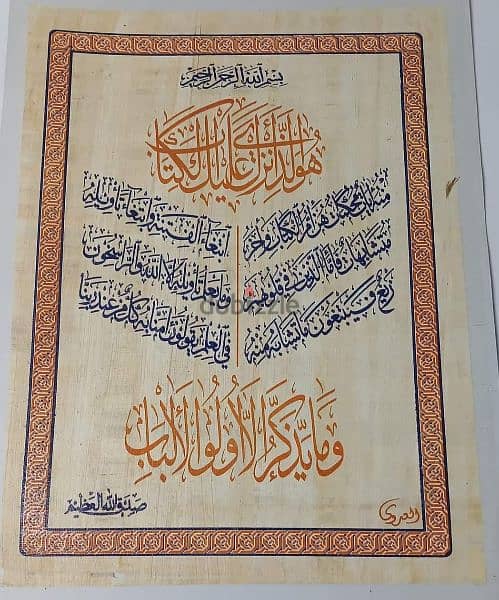 بسم الله الرحمن الرحيم
هو الذي أنزل عليك الكتاب
منه آيات محكمات هن أم الكتاب وأخر
متشابهات فأما الذين في قلوبهم
زيغ فيتبعون ما تشابه منه
ابتغاء الفتنة وابتغاء تأويله
وما يعلم تأويله إلا الله والراسخون
في العلم يقولون آمنا به كل من عند ربنا
dubizzle
وَمَا يَذَّكَّرُ إِلَّا أُولُوا الْأَلْبَابِ
صدق الله العظيم